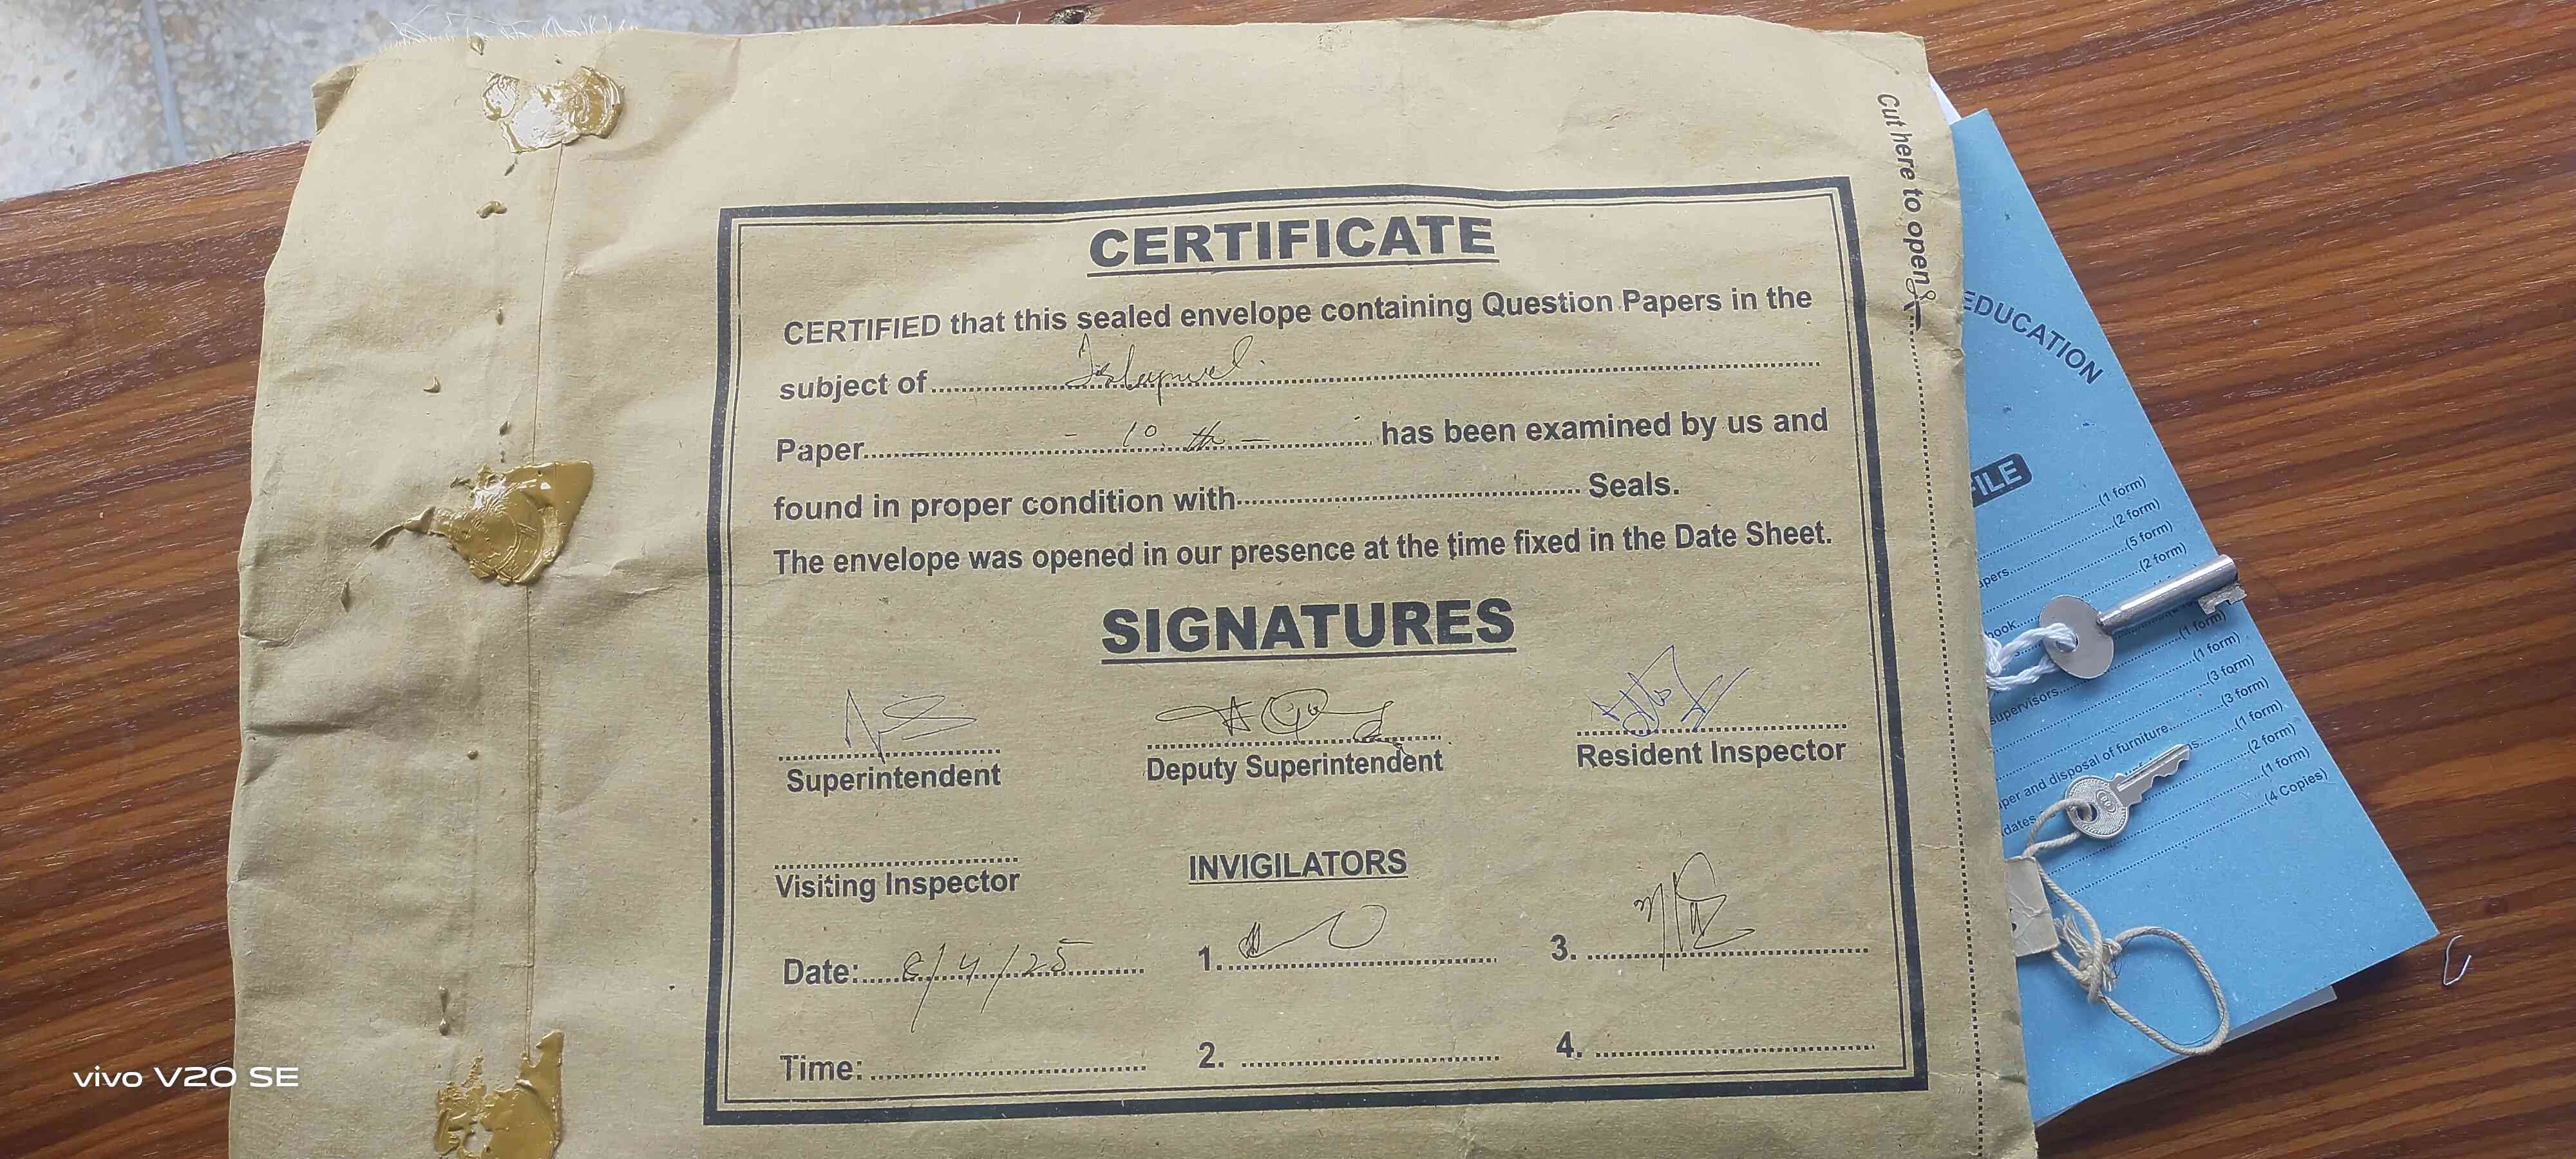 CERTIFICATE
CERTIFIED that this sealed envelope containing Question Papers in the
subject of
Paper - 10 th - has been examined by us and
found in proper condition with Seals.
The envelope was opened in our presence at the time fixed in the Date Sheet.
SIGNATURES
Superintendent Deputy Superintendent Resident Inspector
Visiting Inspector INVIGILATORS
Date: 8/4/25 1. 3.
Time: 2. 4.
Cut here to open
EDUCATION
FILE
(1 form)
(2 form)
(5 form)
(2 form)
(1 form)
(1 form)
supervisors (3 form)
(3 form)
and disposal of furniture (1 form)
(2 form)
(1 form)
(4 Copies)
vivo V20 SE